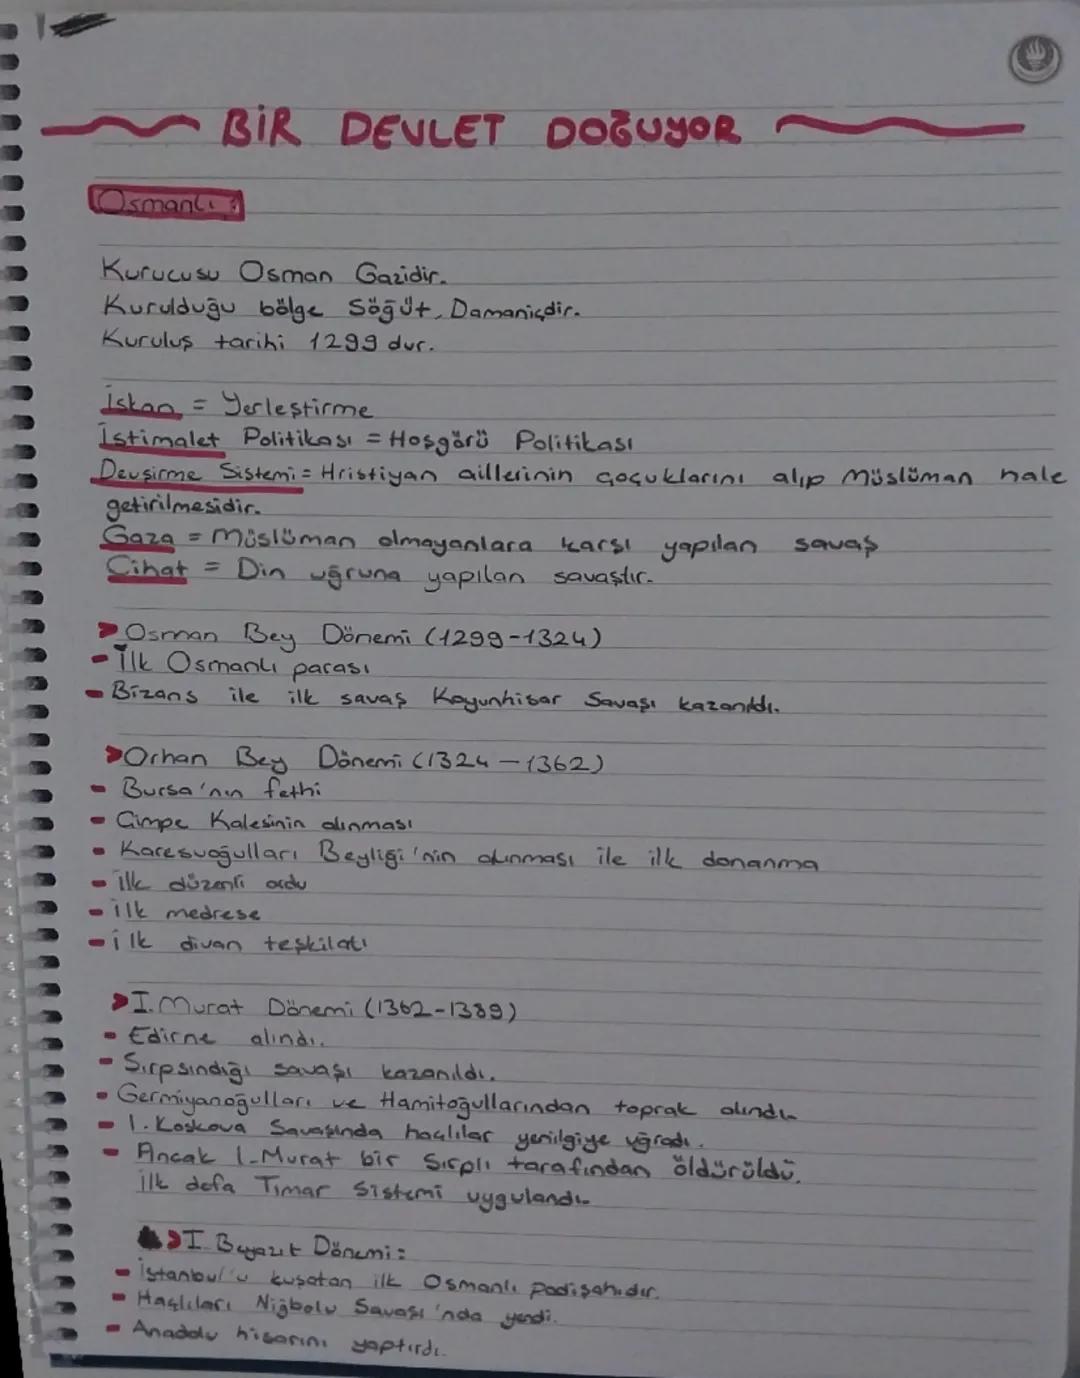 BİR DEVLET DOĞUYOR
Osmanlı:
Kurucusu Osman Gazidir.
Kurulduğu bölge Söğüt, Damaniçdir.
Kuruluş tarihi 1299 dur.
İskan = Yerleştirme
İstimalet Politikası = Hoşgörü Politikası
Devşirme Sistemi = Hristiyan aillerinin çoçuklarını alıp Müslüman hale
getirilmesidir.
Gaza = Müslüman olmayanlara karşı yapılan savaş
Cihat = Din uğruna yapılan savaştır.
Osman Bey Dönemi (1299-1324)
- İlk Osmanlı parası
- Bizans ile ilk savaş Koyunhisar Savaşı kazanıldı.
Orhan Bey Dönemi (1324-1362)
- Bursa'nın fethi
- Çimpe Kalesinin alınması
- Karesuoğulları Beyliği'nin alınması ile ilk donanma
- ilk düzenli ordu
- ilk medrese
- ilk divan teşkilatı
I. Murat Dönemi (1362-1389)
- Edirne alındı.
- Sırpsındığı savaşı kazanıldı.
- Germiyanoğulları ve Hamitoğullarından toprak alındı.
- 1. Koskova Savaşında haçlılar yenilgiye uğradı.
- Ancak 1. Murat bir Sırplı tarafından öldürüldü.
ilk defa Tımar Sistemi uygulandı.
I. Beyazıt Dönemi:
- İstanbul'u kuşatan ilk Osmanlı padişahıdır.
- Haçlıları Niğbolu Savaşı'nda yendi.
- Anadolu hisarını yaptırdı.